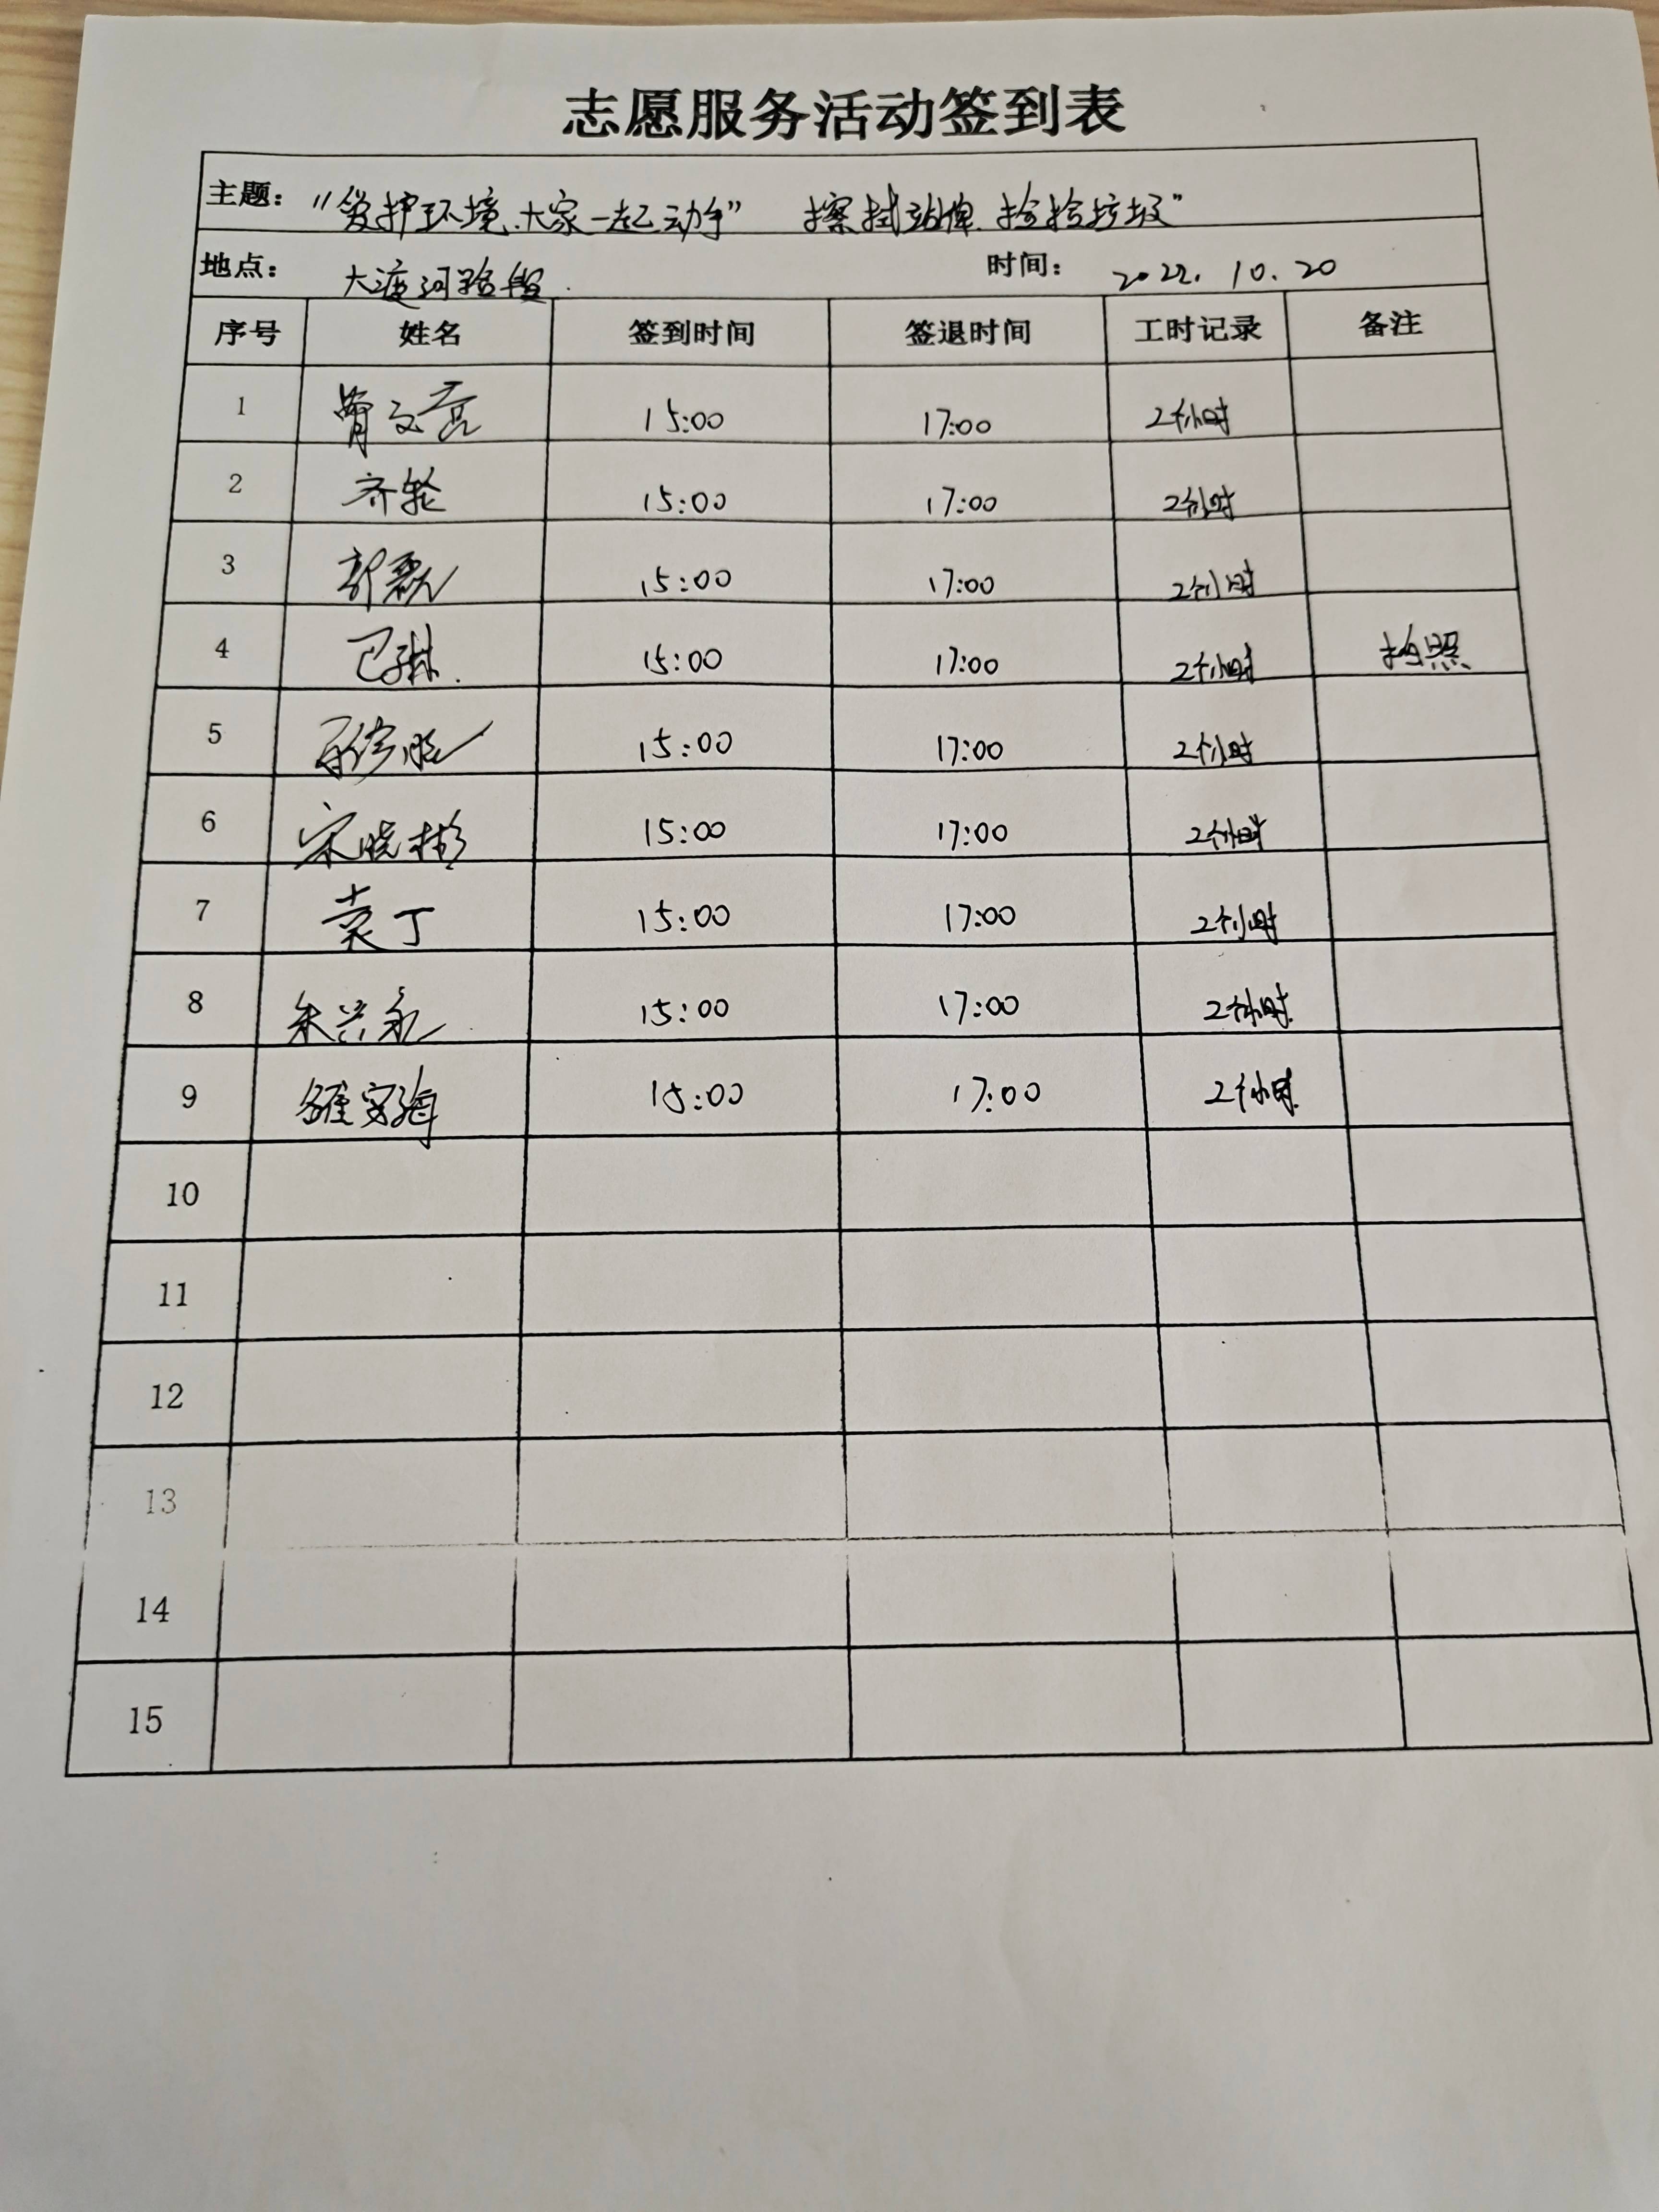 志愿服务活动签到表
主题： “爱护环境、大家一起动手” 擦拭站牌、捡捡垃圾”
地点： 大渡河路段 时间： 2022.10.20
序号 姓名 签到时间 签退时间 工时记录 备注
1 曾文亮 15:00 17:00 2个小时
2 齐轮 15:00 17:00 2个小时
3 郭磊 15:00 17:00 2个小时
4 15:00 17:00 2个小时 拍照
5 15:00 17:00 2个小时
6 宋晓彬 15:00 17:00 2个小时
7 袁丁 15:00 17:00 2个小时
8 朱兴永 15:00 17:00 2个小时
9 15:00 17:00 2个小时
10
11
12
13
14
15